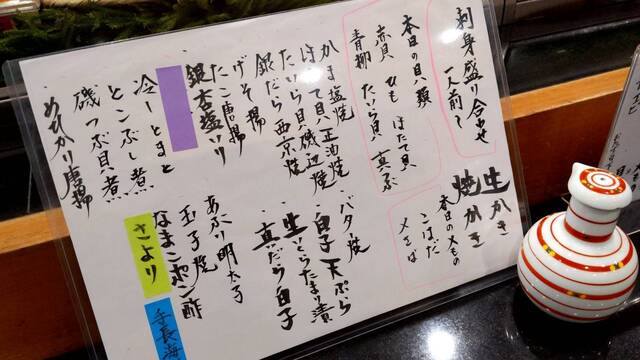 刺身盛り合わせ
一人前〜
本日の貝類
赤貝 ひも ほたて貝
青柳 たいら貝 真つぶ
かま塩焼
ほたて貝 正油焼
たいら貝 磯辺焼
銀だら西京焼
げそ揚
たこ唐揚
銀杏塩いり
冷しとまと
とこぶし煮
磯つぶ貝煮
めひかり唐揚
生かき
焼かき
本日の〆もの
こはだ
〆さば
・バター焼
・白子 天ぷら
・生とらたまり漬
・真だら白子
あぶり明太子
玉子焼
なまこポン酢
さより
手長海